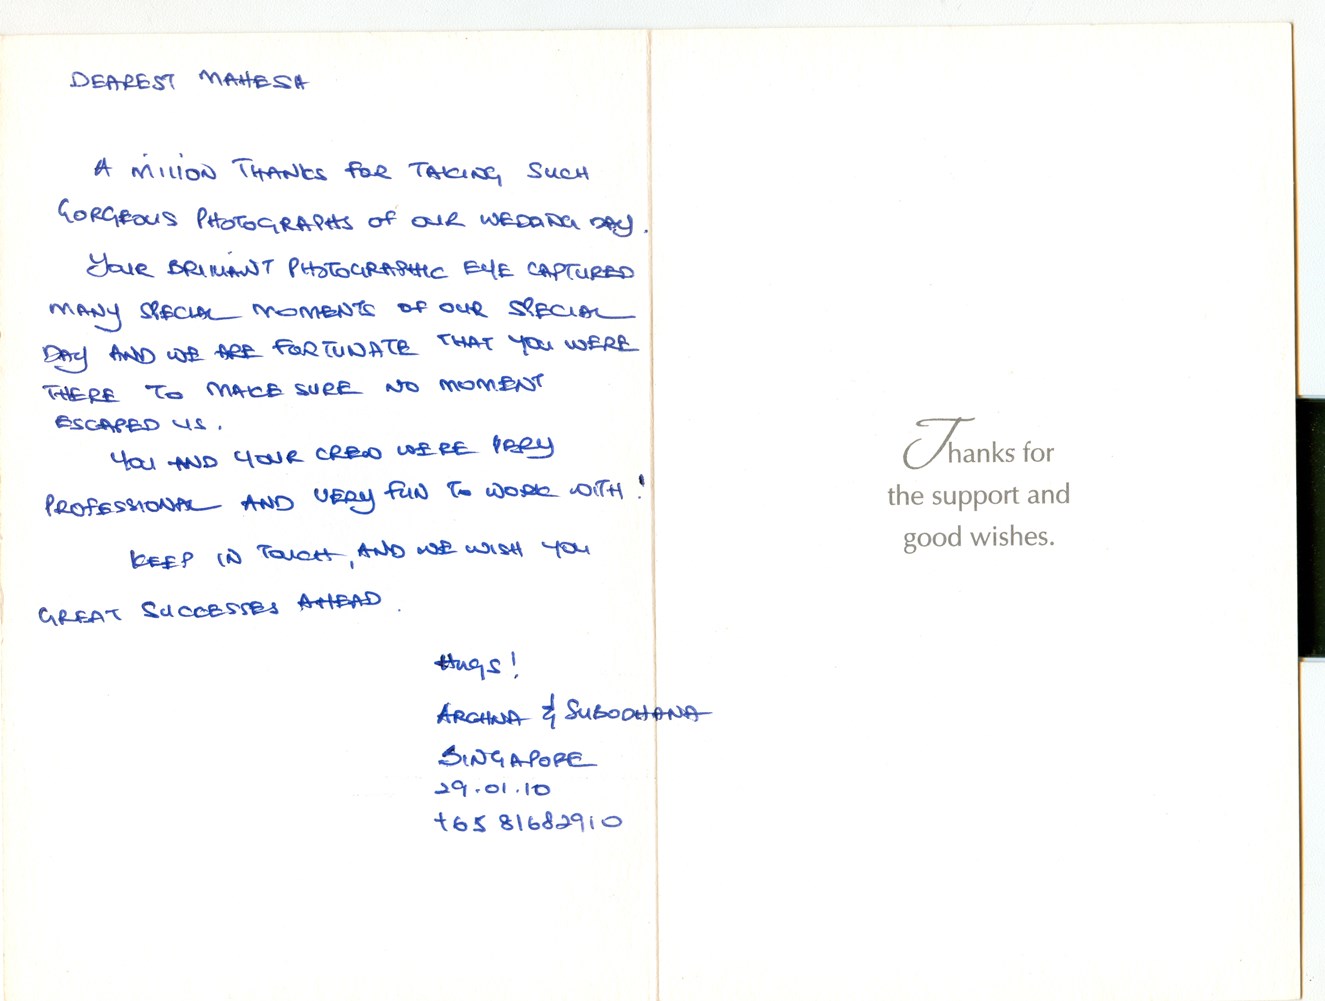 DEAREST MAHESH
A MILLION THANKS FOR TAKING SUCH
GORGEOUS PHOTOGRAPHS OF OUR WEDDING DAY.
YOUR BRILLIANT PHOTOGRAPHIC EYE CAPTURED
MANY SPECIAL MOMENTS OF OUR SPECIAL
DAY AND WE ARE FORTUNATE THAT YOU WERE
THERE TO MAKE SURE NO MOMENT
ESCAPED US.
YOU AND YOUR CREW WERE VERY
PROFESSIONAL AND VERY FUN TO WORK WITH!
KEEP IN TOUCH, AND WE WISH YOU
GREAT SUCCESSES AHEAD.
Hugs!
ARCHNA & SUBODHANA
SINGAPORE
29.01.10
+65 81682910
Thanks for
the support and
good wishes.